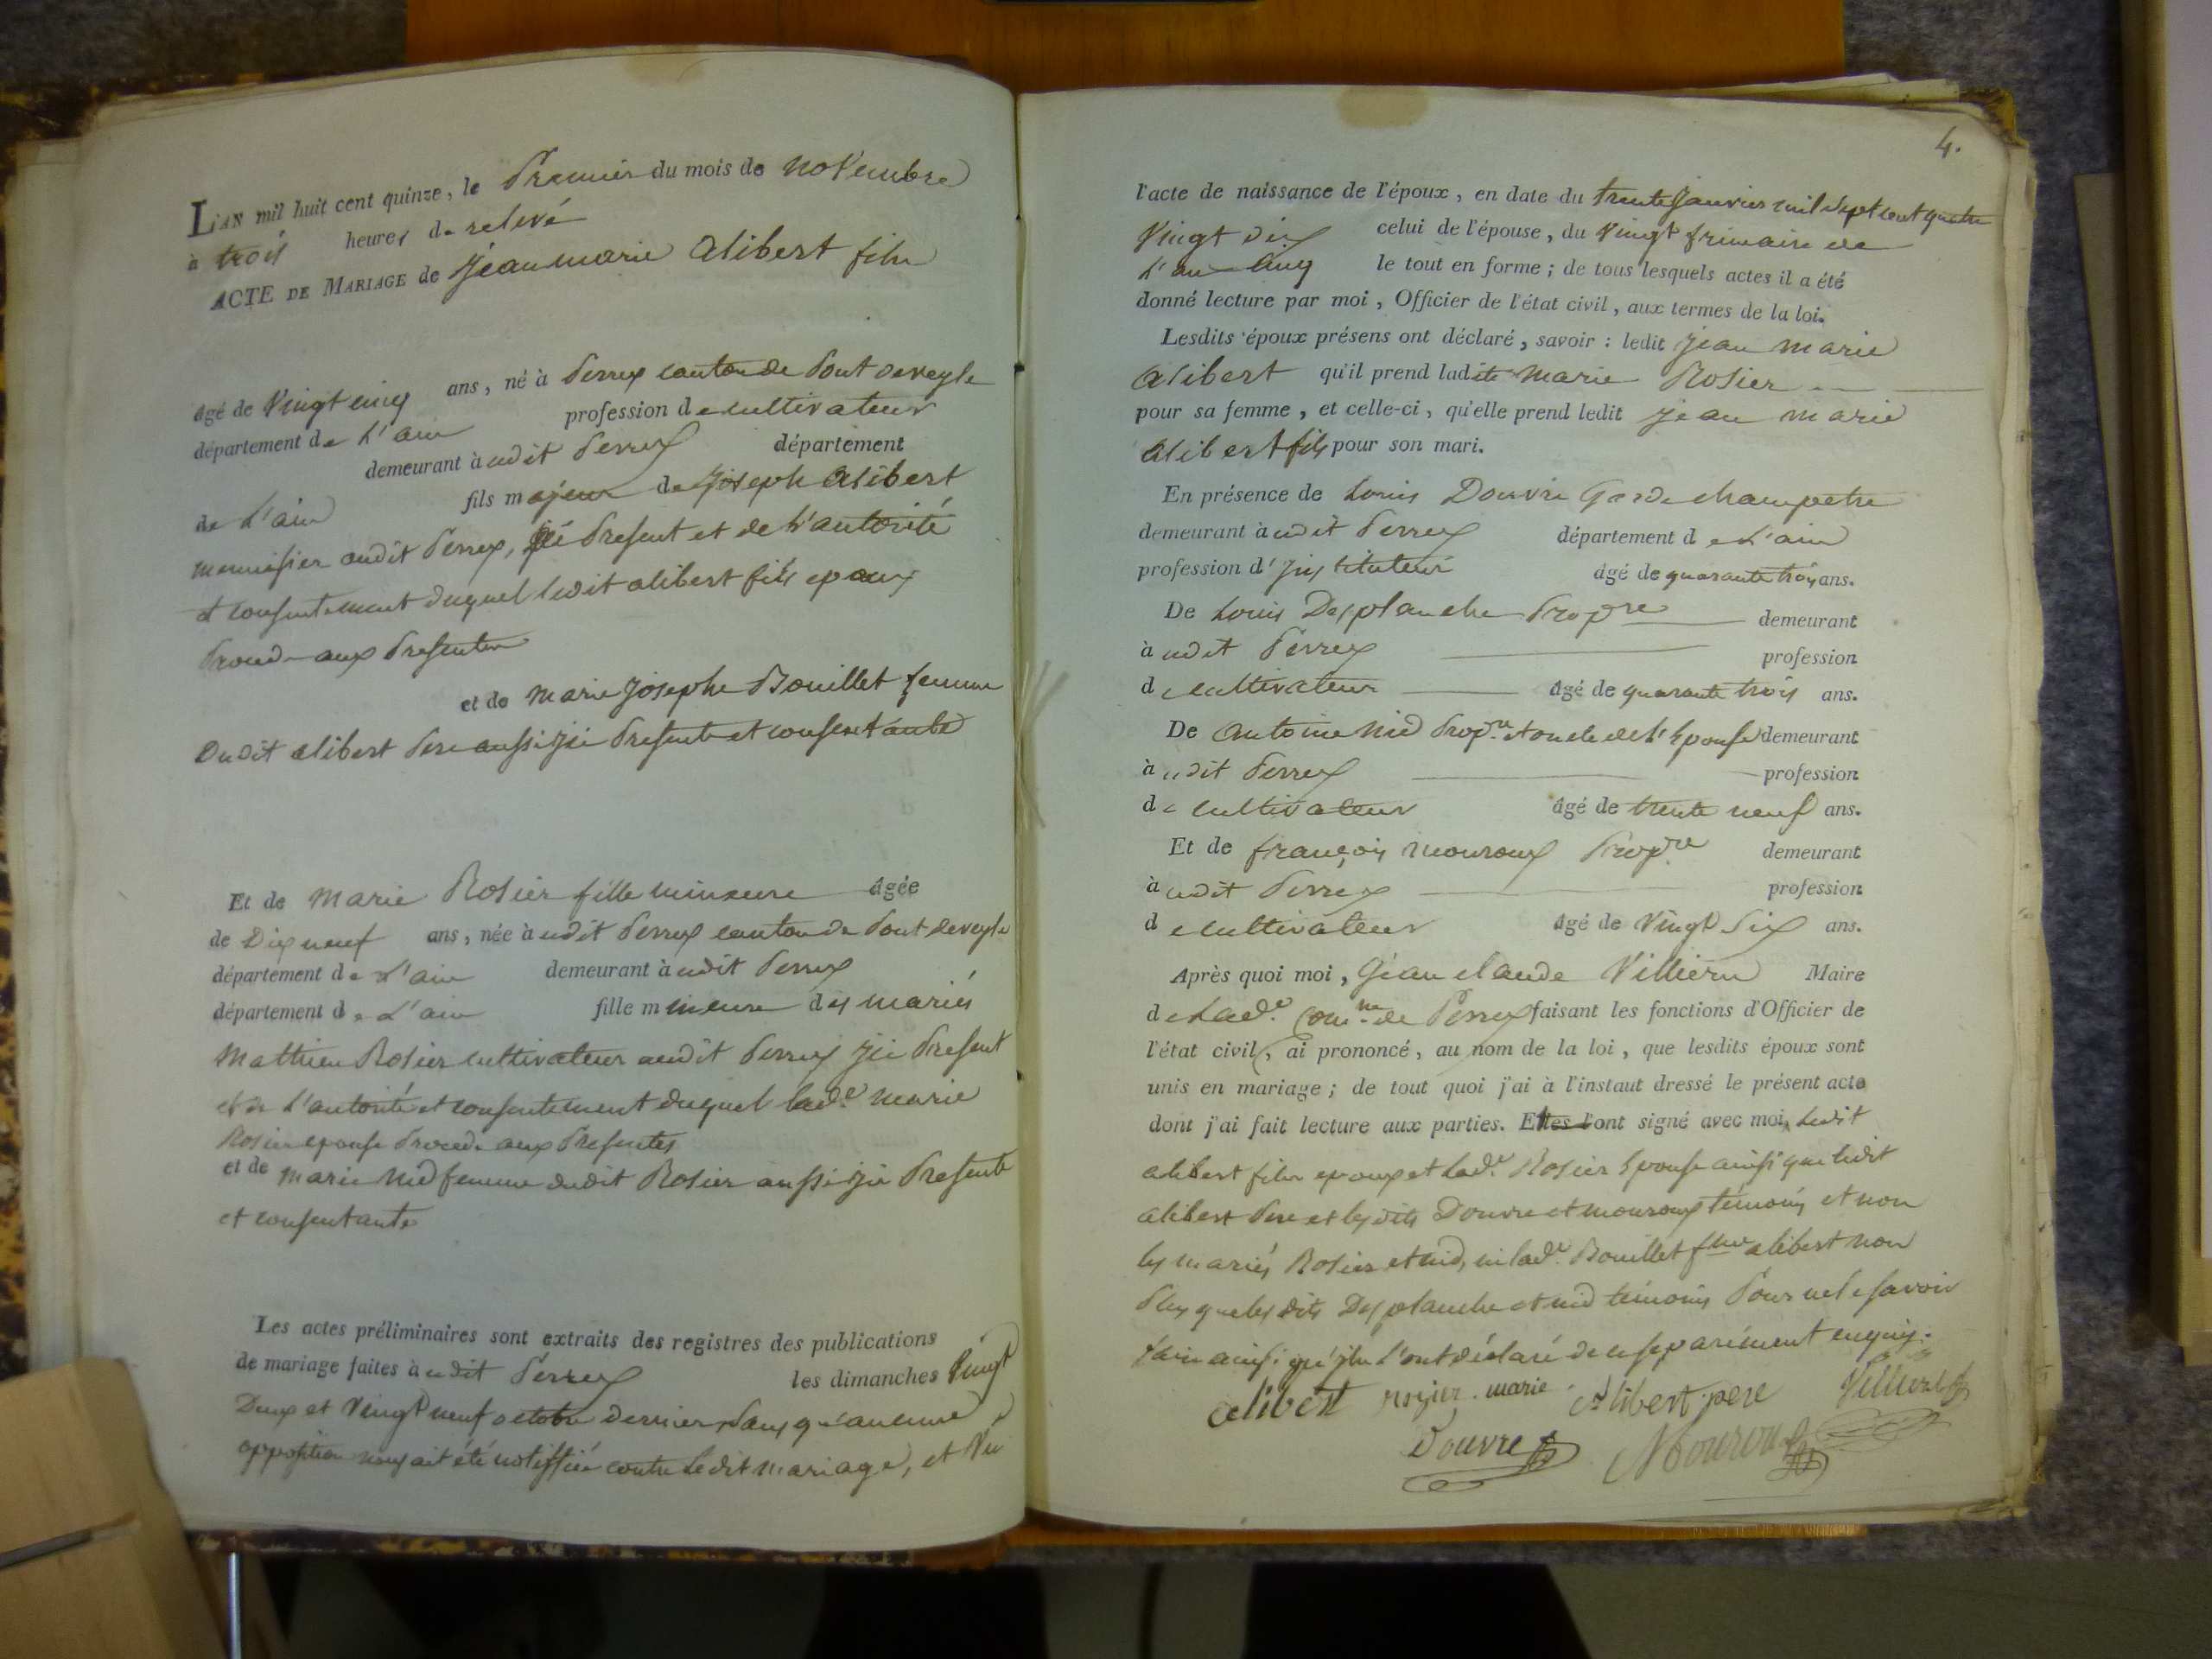 L'AN mil huit cent quinze, le Premier du mois de novembre
à trois heures de relevé
ACTE DE MARIAGE de Jean marie alibert fils
âgé de Vingt cinq ans, né à Perrex canton de Pont deveyle
département de L'ain profession de cultivateur
demeurant à udit Perrex département
de L'ain fils majeur de Joseph alibert
menuisier audit Perrex, ici Present et de L'autorité
et consentement duquel ledit alibert fils epoux
Procede aux Presentes
et de marie Josephe Bouillet femme
Dudit alibert Pere aussi ici Presente et consentante
Et de marie Rosier fille mineure âgée
de Dix neuf ans, née à udit Perrex canton de Pont deveyle
département de L'ain demeurant à udit Perrex
département de L'ain fille mineure des mariés
Mathieu Rosier cultivateur audit Perrex ici Present
et de L'autorité et consentement duquel lad.e marie
Rosier epouse Procede aux Presentes
et de marie nid femme dudit Rosier aussi ici Presente
et consentante
Les actes préliminaires sont extraits des registres des publications
de mariage faites à udit Perrex les dimanches Vingt
Deux et Vingt neuf octobre dernier, sans qu'aucune
opposition nous ait été notiffiée contre ledit mariage, et Vu
4.
l'acte de naissance de l'époux, en date du trente Janvier mil sept cent quatre
Vingt dix celui de l'épouse, du Vingt frimaire de
L'an Cinq le tout en forme; de tous lesquels actes il a été
donné lecture par moi, Officier de l'état civil, aux termes de la loi.
Lesdits époux présens ont déclaré, savoir : ledit Jean marie
alibert qu'il prend ladite marie Rosier
pour sa femme, et celle-ci, qu'elle prend ledit Jean marie
alibert fils pour son mari.
En présence de Louis Douvre Garde champetre
demeurant à udit Perrex département de L'ain
profession d'Instituteur âgé de quarante trois ans.
De Louis Desplanche Prop.re demeurant
à udit Perrex profession
de cultivateur âgé de quarante trois ans.
De antoine nid Prop.re et oncle de L'Epouse demeurant
à udit Perrex profession
de cultivateur âgé de trente neuf ans.
Et de françois mouroux Prop.re demeurant
à udit Perrex profession
de cultivateur âgé de Vingt Six ans.
Après quoi moi, Jean claude Villiern Maire
de Lad.e Com.ne de Perrex faisant les fonctions d'Officier de
l'état civil, ai prononcé, au nom de la loi, que lesdits époux sont
unis en mariage; de tout quoi j'ai à l'instant dressé le présent acte
dont j'ai fait lecture aux parties. Et ont signé avec moi, Ledit
alibert fils epoux et Lad.e Rosier Epouse ainsi que ledit
alibert Pere et lesdits Douvre et mouroux témoins et non
les mariés Rosier et nid, ni lad.e Bouillet f.me alibert non
Plus que lesdits Desplanche et nid témoins Pour ne le savoir
faire ainsi qu'ils L'ont déclaré de ce separément enquis.
alibert rosier marie Alibert pere
Douvre Mouroux